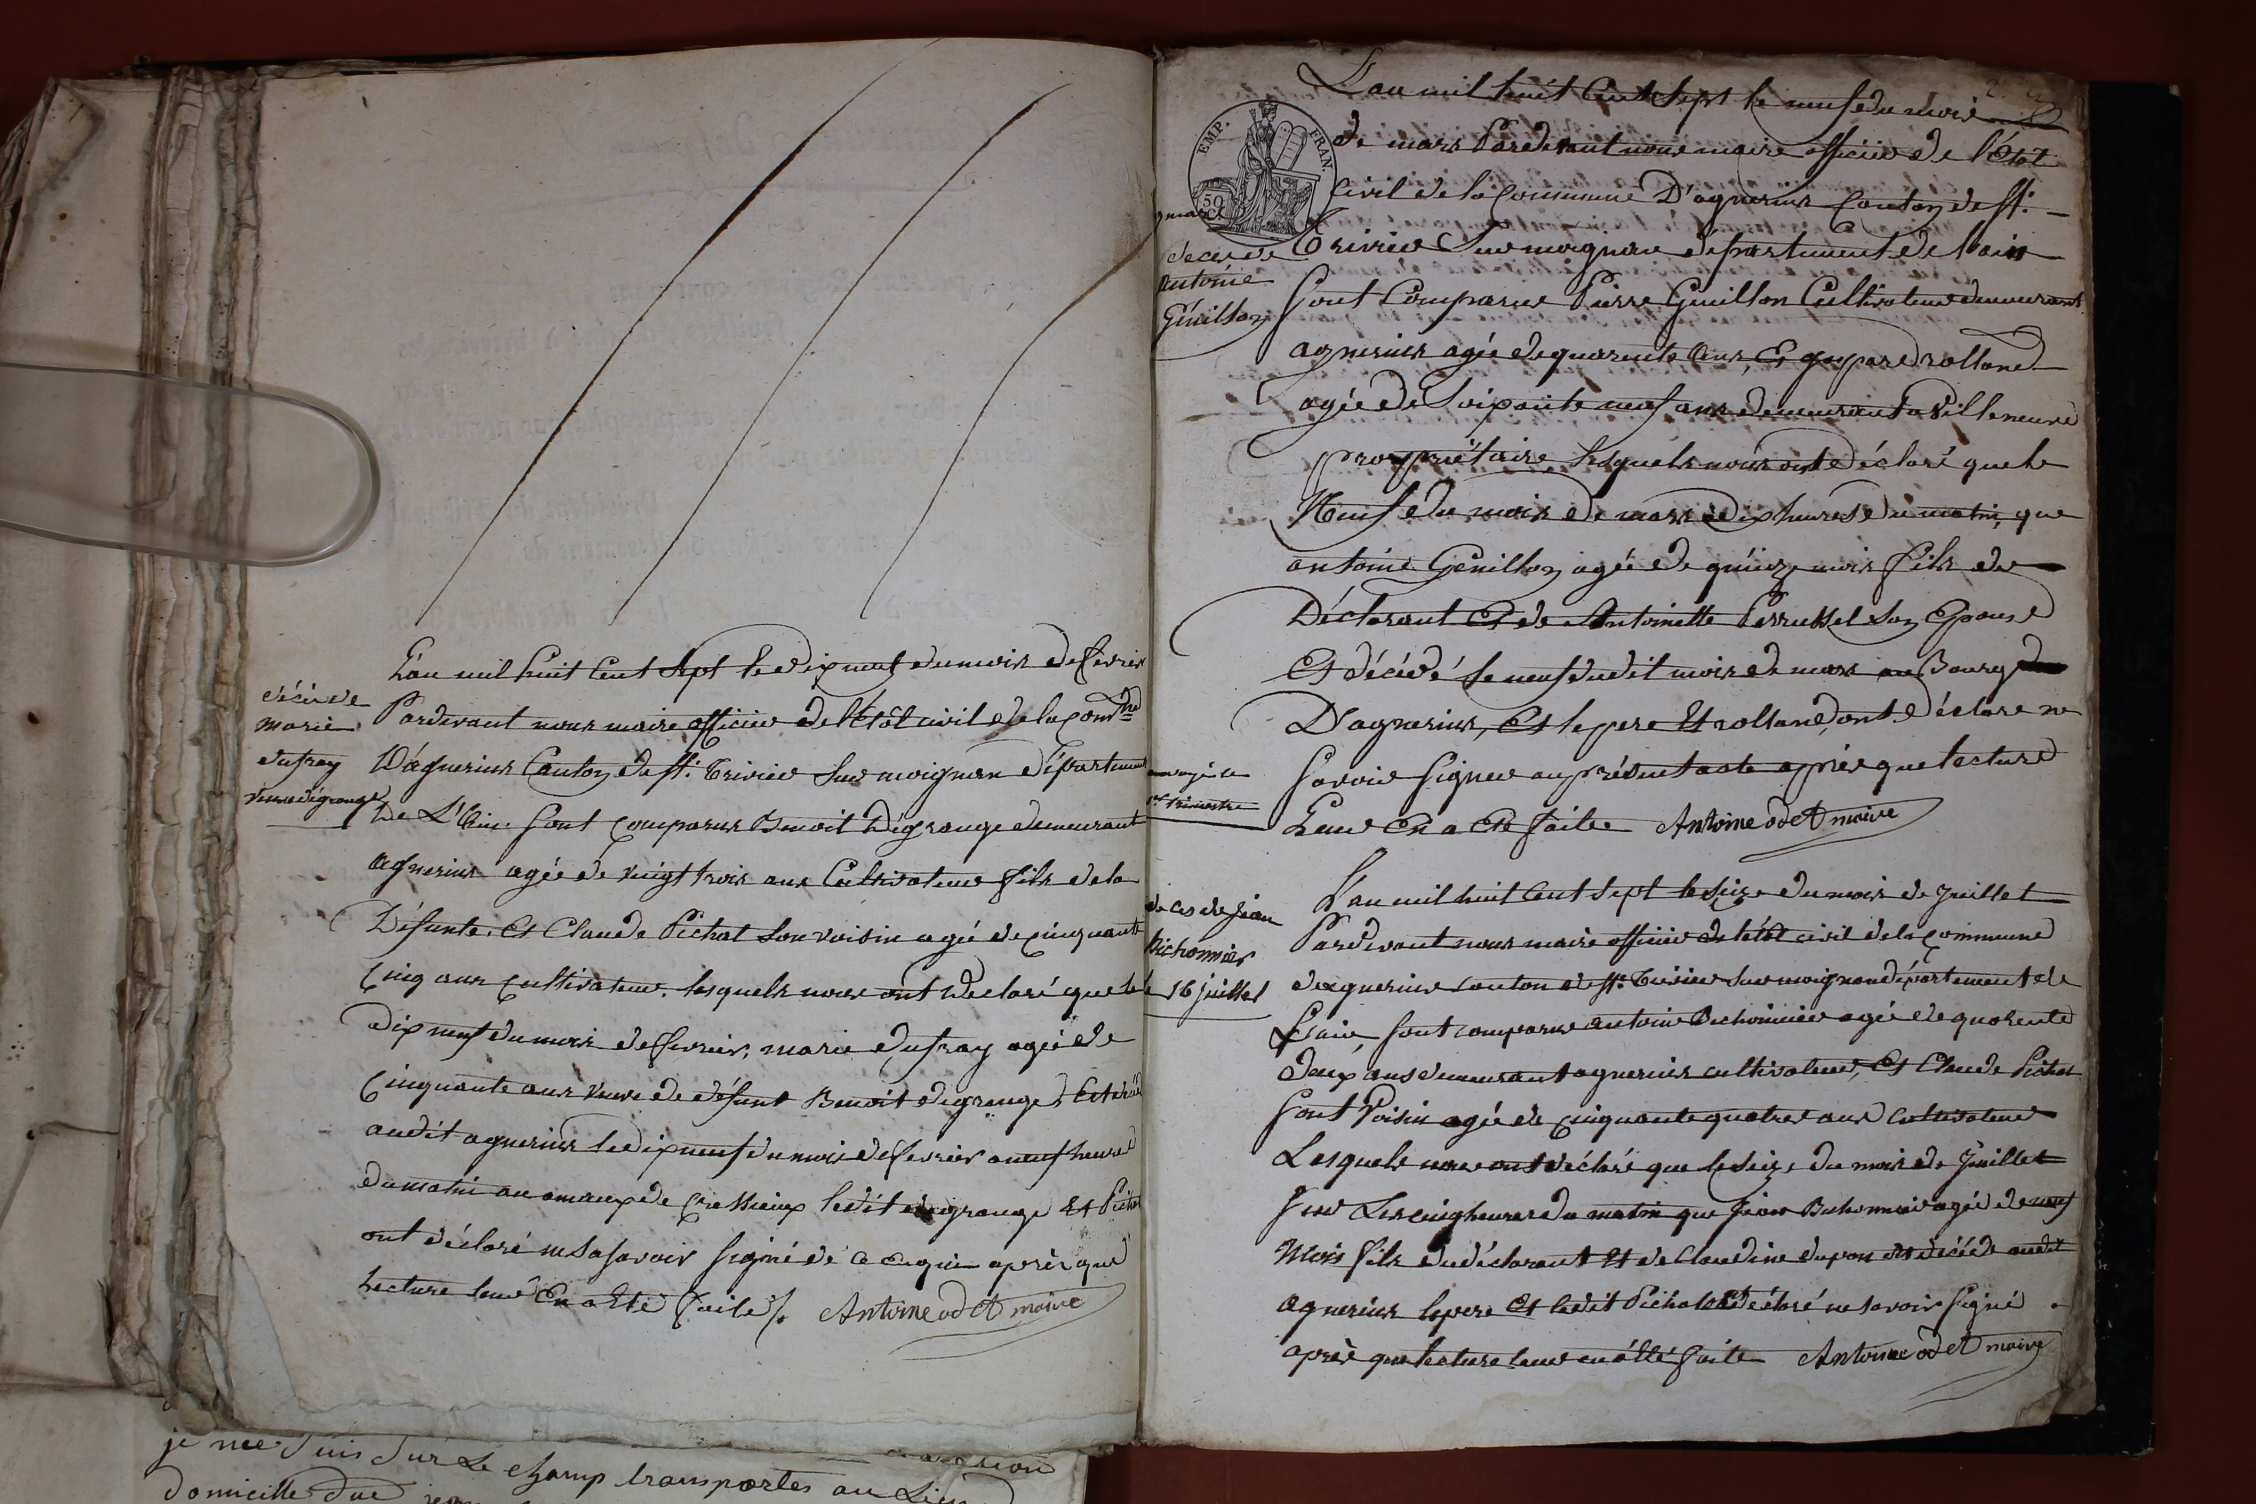 décés de
marie
dufray
veuve dégrange
L'an mil huit Cent Sept le dix neuf du mois de fevrier
Pardevant nous maire officier de l'Etat civil de la Comm.ne
D'agnerins Canton de St. Trivier Sur moignan Département
De L'Ain. Sont Comparus Benoit Degrange demeurant
agnerins agée de vingt trois ans Cultivateur fils de la
Défunte, Et Claude Pichat Son voisin agée de Cinquante
Cinq ans Cultivateur. lesquels nous ont Declaré que le
dix neuf du mois de fevrier, marie dufray agée de
Cinquante ans veuve de défunt Benoit degrange, Est
audit agnerins le dix neuf du mois de fevrier a neuf heure
du matin au amaux de Cressieux ledit degrange Et Pichat
ont déclaré ne Sa savoir Signé de ce enquis après que
lecture leur En a Eté faite /. Antoine odet maire
EMP. FRAN.
50
9 mars
déces de
Antoine
Génillon
L'an mil huit Cent Sept le neuf du mois
de mars Pardevant nous maire officier de l'Etat
Civil de la Commune D'agnerins Canton de St.
Trivier Sur moignan département de l'ain
Sont Comparus Pierre Genillon Cultivateur demeurant
agnerins agée de quarente ans, Et gaspard rolland
agée de Soixante neuf ans demeurant a Villeneuve
propriétaire, lesquels nous ont déclaré que le
Neuf du mois de mars a dix heures du matin, que
antoine Génillon agée de quinze mois fils de
Déclarant Et de Antoinette Perrussel Son Epouse
Et décédé le neuf dudit mois de mars au Bourg
D'agnerins, Et le pere Et rolland, ont déclaré ne
Savoir Signer au présent acte après que lecture
Leur En a Eté faite Antoine odet maire
envoyé le
1er trimestre
déces de Jean
Bichonnier
le 16 juillet
L'an mil huit Cent Sept le Seize du mois de Juillet
Pardevant nous maire officier de l'état civil de la Commune
d'agnerins Canton de St. Trivier Sur moignan département de
L'ain, Sont comparus antoine Bichonnier agée de quarente
deux ans demeurant agnerins cultivateur, Et Claude Pichat
Sont Voisin agée de Cinquante quatre ans Cultivateur
Lesquels nous ont déclaré que le Seize du mois de Juillet
Sur Les cinq heures du matin que Jean Bichonnier agée de neuf
Mois fils du déclarant Et de Claudine dupon Est décédé audit
agnerins le pere Et ledit Pichat ont déclaré ne Savoir Signé
après que lecture leur en a été faite Antoine odet maire
je me Suis Sur Le champ transportes au Lieu
Domicille